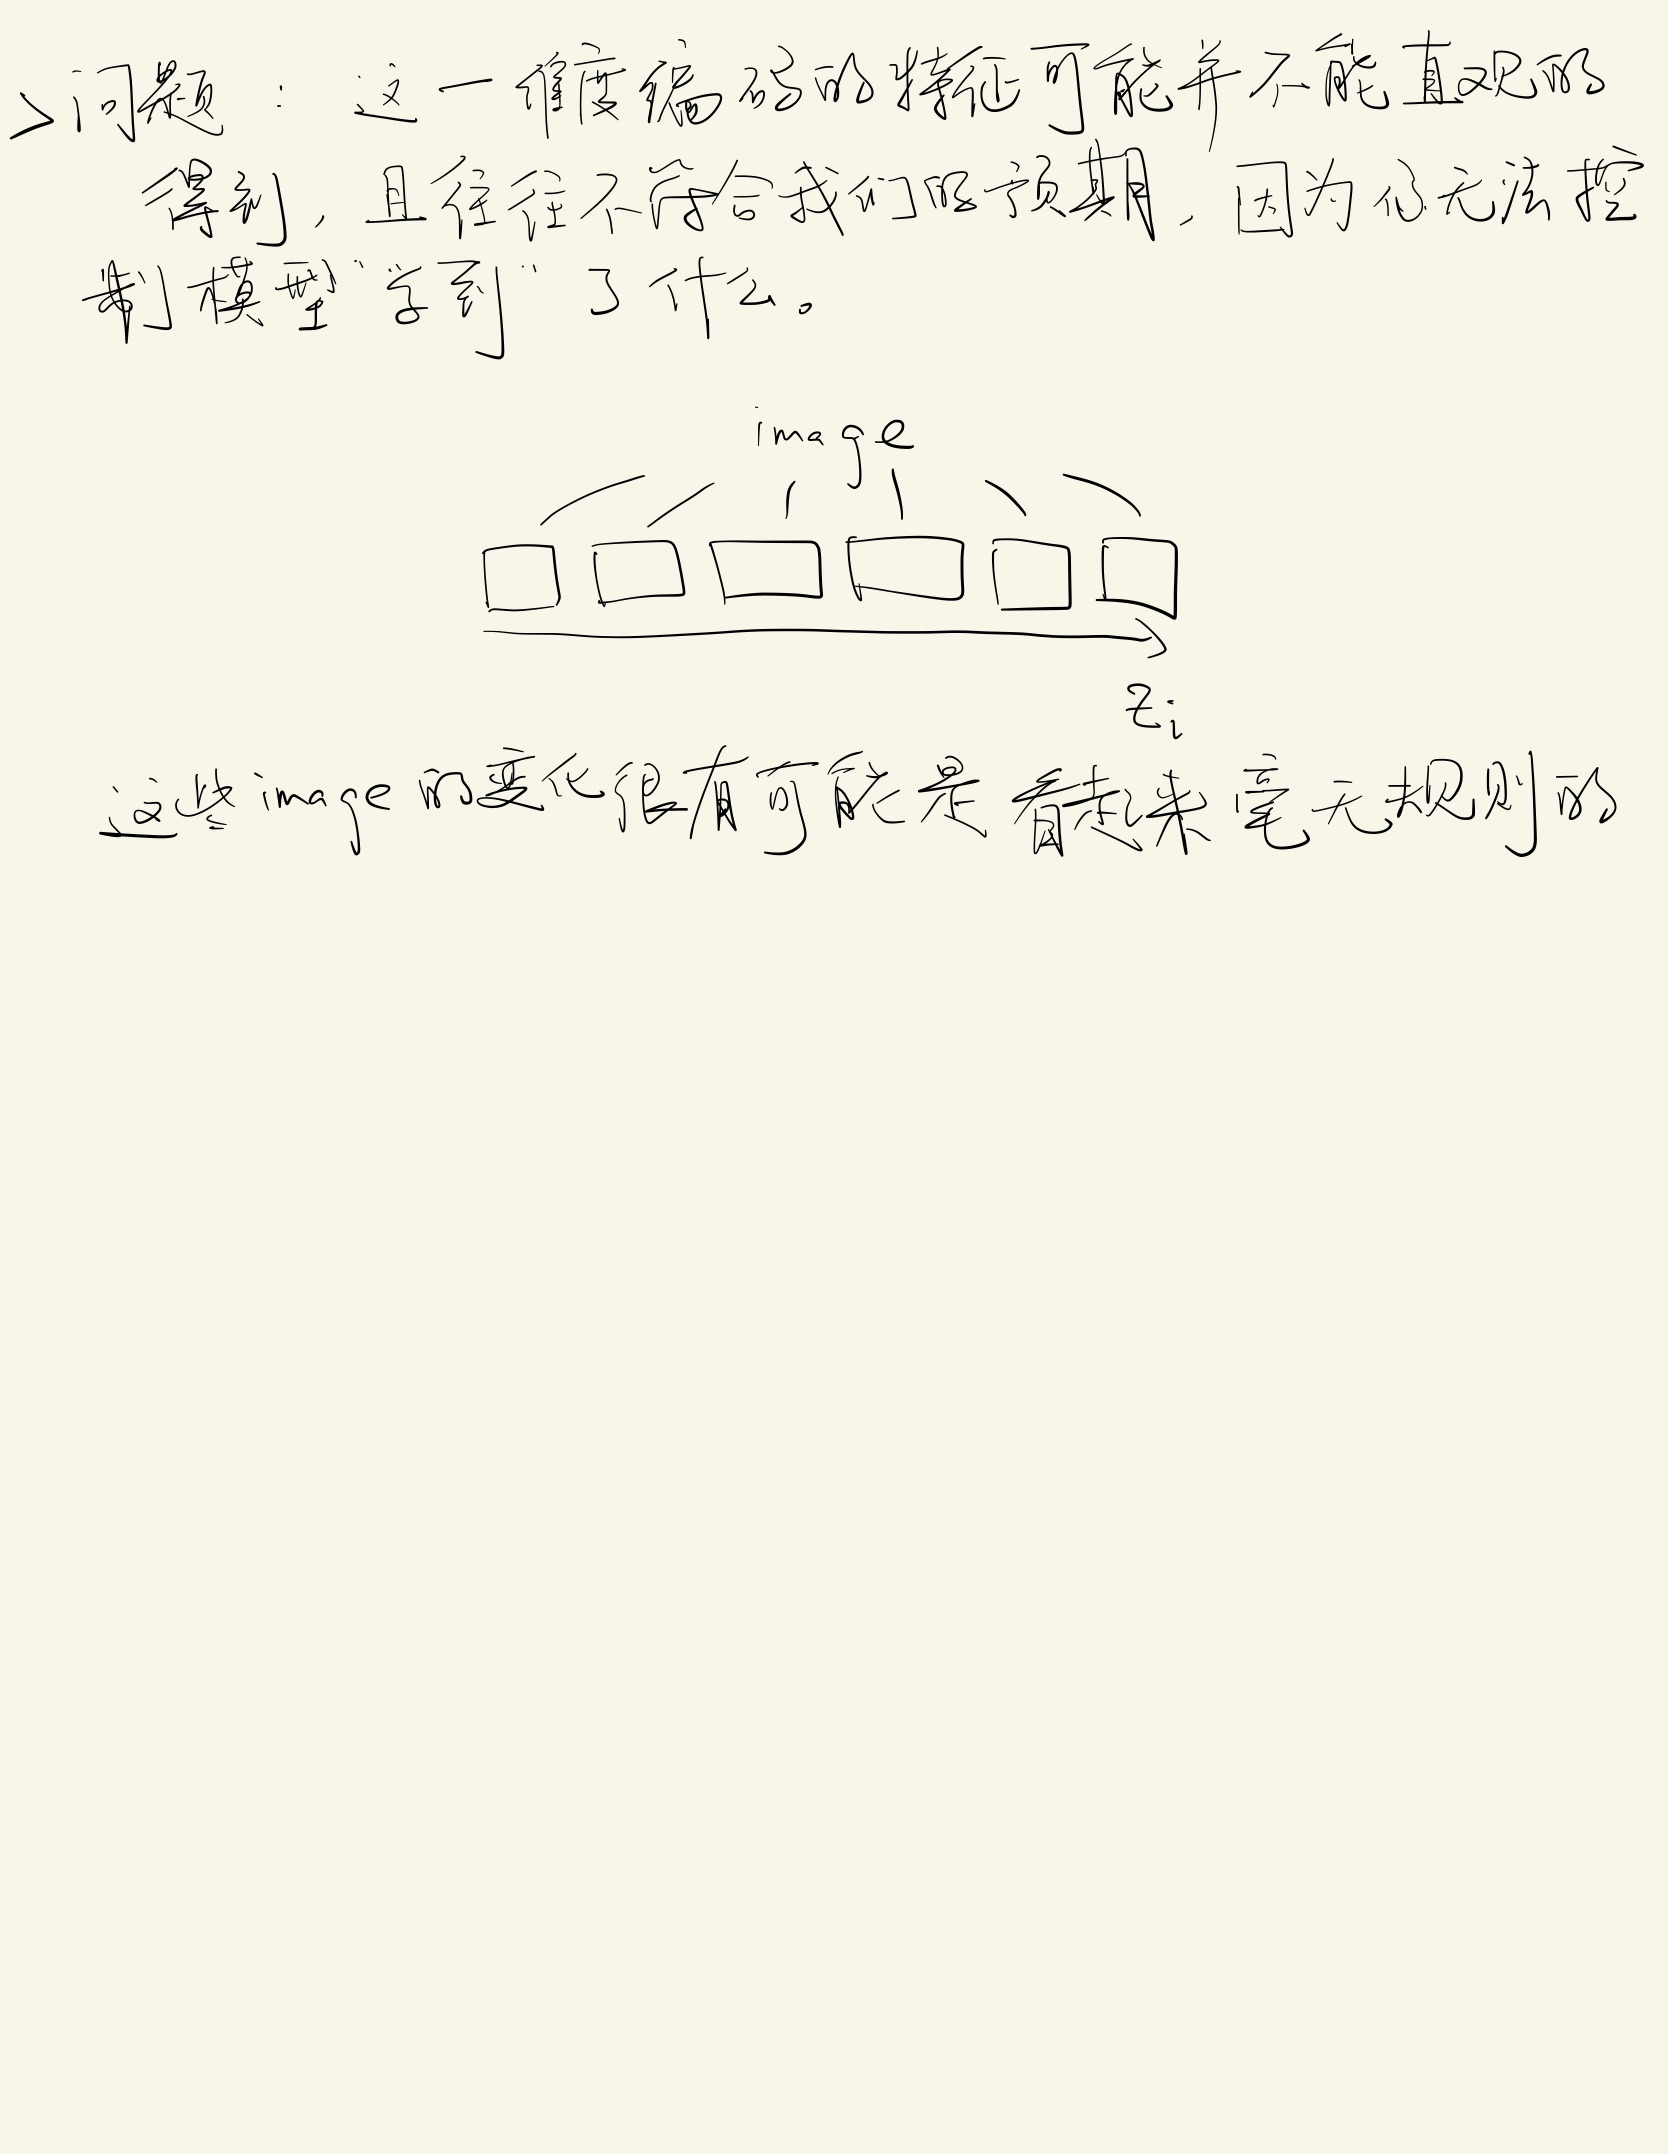 >问题：这一维度编码的特征可能并不能直观的
得到，且往往不符合我们的预期，因为你无法控
制模型“学到”了什么。
image
zi
这些image的变化很有可能是看起来毫无规则的